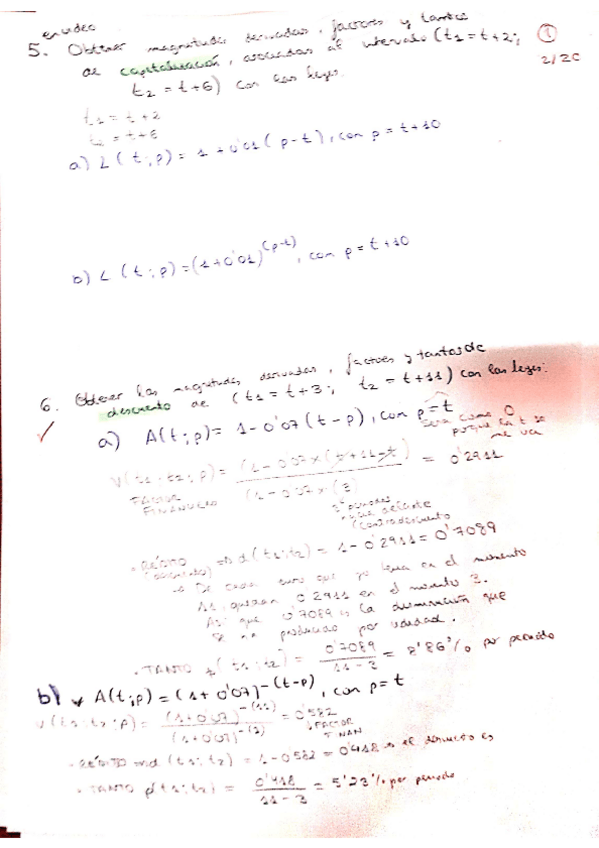 en video
5. Obtener magnitudes derivadas, factores y tantos
de capitalización, asociadas al intervalo (t1 = t+2;
t2 = t+6) con las leyes.
1
2/2C
t1 = t+2
t2 = t+6
a) L(t;p) = 1 + 0'01(p-t), con p = t+10
b) L(t;p) = (1+0'01)^(p-t), con p = t+10
6. Obtener las magnitudes derivadas, factores y tantos de
descuento de (t1 = t+3; t2 = t+11) con las leyes:
a) A(t;p) = 1-0'07(t-p), con p=t
Sería como 0
porque la t se
me va
V(t1;t2;p) = (1-0'07x(t+11-t) / (1-0'07x(3) = 0'2911
FACTOR
FINANCIERO
3 periodos
que adelante
(contradescuento
• RÉDITO => d(t1;t2) = 1-0'2911 = 0'7089
(descuento)
→ De cada euro que yo tenía en el momento
11, quedan 0'2911 en el momento 3.
Así que 0'7089 es la disminución que
se ha producido por unidad.
• TANTO (t1;t2) = 0'7089 / 11-3 = 8'86% por periodo
b) A(t;p) = (1+0'07)^-(t-p), con p=t
V(t1;t2;p) = (1+0'07)^-(11) / (1+0'07)^-(3) = 0'582
FACTOR
FINAN
• RÉDITO => d(t1;t2) = 1-0'582 = 0'418 el descuento es
• TANTO (t1;t2) = 0'418 / 11-3 = 5'23% por periodo